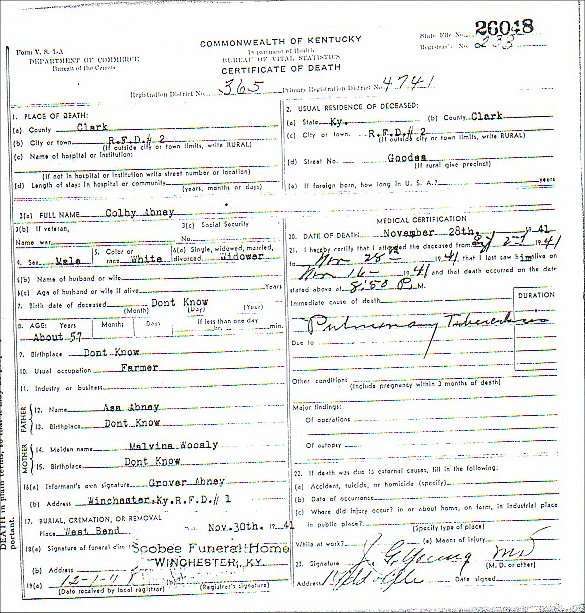 Form V. S. 1-A
DEPARTMENT OF COMMERCE
Bureau of the Census
COMMONWEALTH OF KENTUCKY
Department of Health
BUREAU OF VITAL STATISTICS
CERTIFICATE OF DEATH
State File No. 26048
Registrar's No. 233
Registration District No. 365 Primary Registration District No. 4741
1. PLACE OF DEATH:
(a) County Clark
(b) City or town R.F.D.# 2
(If outside city or town limits, write RURAL)
(c) Name of hospital or institution:
(If not in hospital or institution write street number or location)
(d) Length of stay: In hospital or community (years, months or days)
2. USUAL RESIDENCE OF DECEASED:
(a) State Ky. (b) County Clark
(c) City or town R.F.D.# 2
(If outside city or town limits, write RURAL)
(d) Street No.
(If rural give precinct)
(e) If foreign born, how long in U. S. A.? years
3(a) FULL NAME Colby Abney
3(b) If veteran, 3(c) Social Security
Name war No.
4. Sex Male 5. Color or race White 6(a) Single, widowed, married, divorced Widower
6(b) Name of husband or wife
6(c) Age of husband or wife if alive Years
7. Birth date of deceased Dont Know
(Month) (Day) (Year)
8. AGE: Years Months Days If less than one day
About 57 hr. min.
9. Birthplace Dont Know
10. Usual occupation Farmer
11. Industry or business
FATHER
12. Name Asa Abney
13. Birthplace Dont Know
MOTHER
14. Maiden name Malvina
15. Birthplace Dont Know
16(a) Informant's own signature Grover Abney
(b) Address Winchester,Ky.R.F.D.# 1
17. BURIAL, CREMATION, OR REMOVAL
Place West Bend Nov.30th. 1941
18(a) Signature of funeral director Scobee Funeral Home
(b) Address WINCHESTER, KY.
19(a) 12-1-41
(Date received by local registrar) (Registrar's signature)
MEDICAL CERTIFICATION
20. DATE OF DEATH: November 28th. 1941
21. I hereby certify that I attended the deceased from 1941
to Nov 28 1941 that I last saw him alive on
Nov 16 1941 and that death occurred on the date
stated above at 8:50 P. M.
DURATION
Immediate cause of death
Pulmonary Tuberculosis
Due to
Other conditions
(Include pregnancy within 3 months of death)
Major findings:
Of operations
Of autopsy
22. If death was due to external causes, fill in the following:
(a) Accident, suicide, or homicide (specify)
(b) Date of occurrence
(c) Where did injury occur? in or about home, on farm, in industrial place
in public place?
(Specify type of place)
While at work? (e) Means of injury
23. Signature J G Young MD
(M. D. or other)
Address Date signed